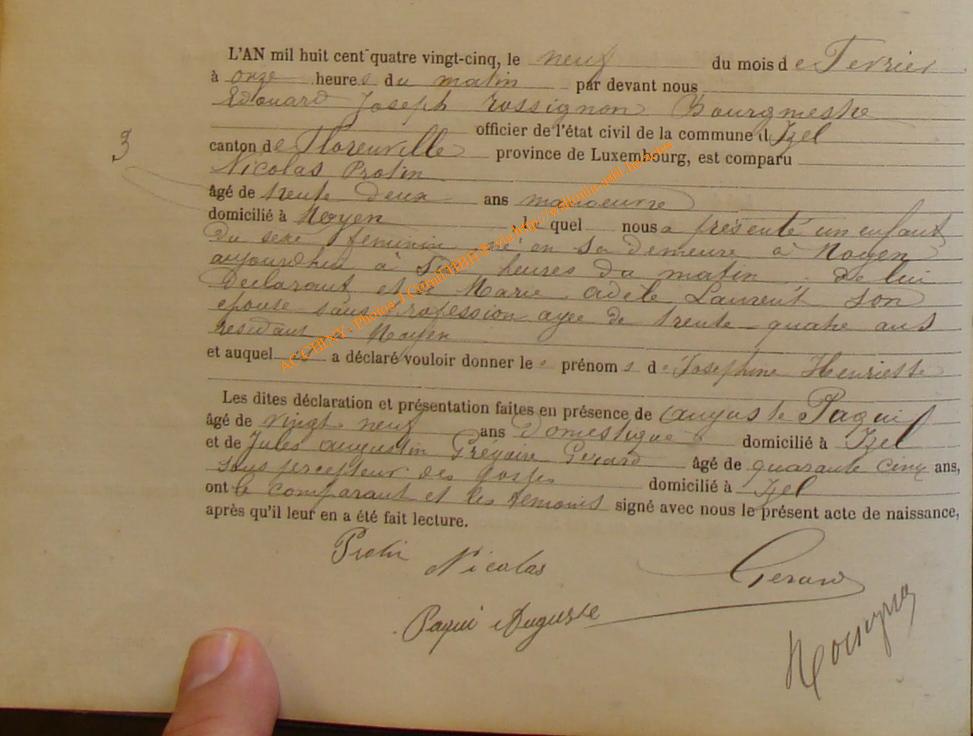 L'AN mil huit cent quatre vingt-cinq, le neuf du mois de Fevrier
à onze heures du matin par devant nous
Edouard Joseph Rossignon Bourgmestre
officier de l'état civil de la commune d'Izel
3
canton de Florenville province de Luxembourg, est comparu
Nicolas Protin
âgé de trente deux ans manoeuvre
domicilié à Moyen le quel nous a présenté un enfant
du sexe feminin né en sa demeure à Moyen
aujourdhui à heures du matin de lui
declarant et Marie adèle Laurent son
epouse sans profession agée de trente-quatre ans
residant Moyen
et auquel a déclaré vouloir donner les prénoms de Josephine Henriette
Les dites déclaration et présentation faites en présence de auguste Paqui
âgé de vingt neuf ans Domestique domicilié à Izel
et de Jules augustin Grégoire Gerard âgé de quarante cinq ans,
sous percepteur des postes domicilié à Izel
ont le comparant et les temoins signé avec nous le présent acte de naissance,
après qu'il leur en a été fait lecture.
Protin Nicolas
Gerard
Paqui Auguste